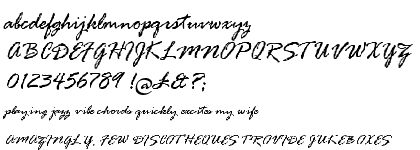 abcdefghijklmnopqrstuvwxyz
ABCDEFGHIJKLMNOPQRSTUVWXYZ
0123456789 !@£&?;
playing jazz vibe chords quickly excites my wife
AMAZINGLY, FEW DISCOTHEQUES PROVIDE JUKEBOXES